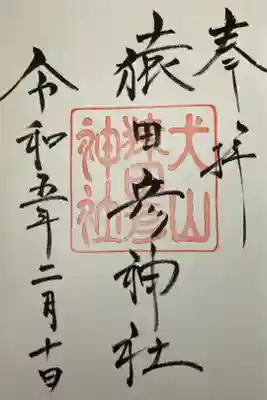 奉拝
猿田彦神社
犬山
猿田彦
神社
令和五年二月十日